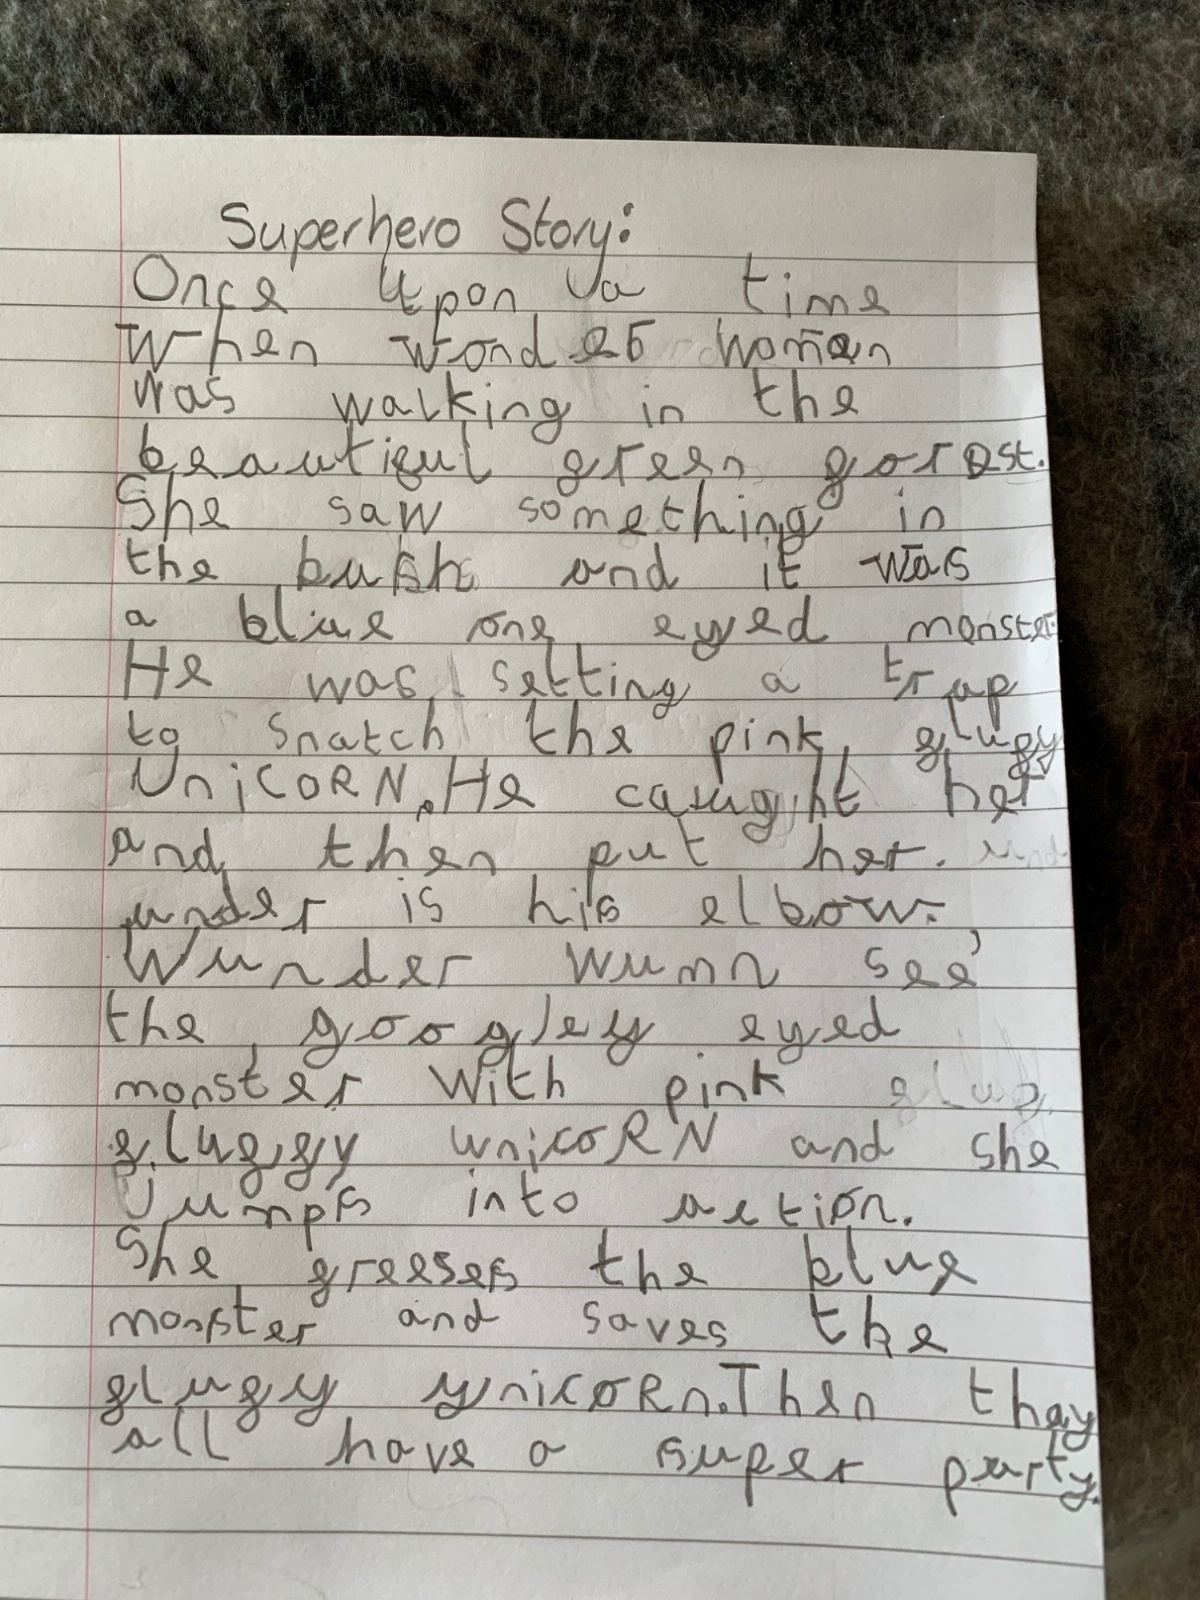 Superhero Story:
Once upon a time
When wonder woman
was walking in the
beautiful green forest.
She saw something in
the bush and it was
a blue one eyed monster
He was setting a trap
to snatch the pink flufy
UniCORN. He caught her
and then put her.
under is his elbow.
Wunder wumn see
the googley eyed
monster with pink
fluffy unicoRN and she
Jumps into action.
She freeses the blue
monster and saves the
flufy unicoRn. Then thay
all have a super party.